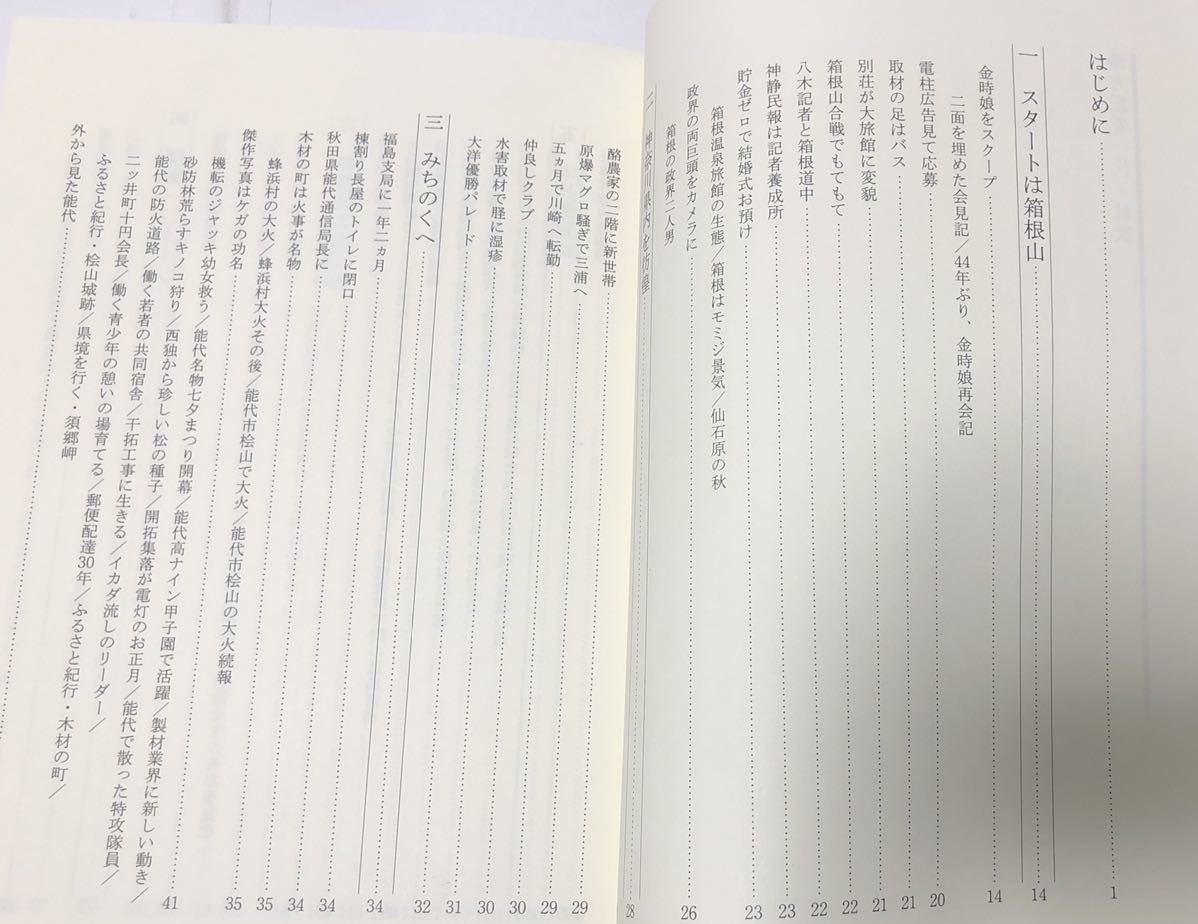 はじめに……1
一 スタートは箱根山……14
金時娘をスクープ……14
二面を埋めた会見記／44年ぶり、金時娘再会記
電柱広告見て応募……20
取材の足はバス……21
別荘が大旅館に変貌……21
箱根山合戦でもてもて……22
八木記者と箱根道中……22
神静民報は記者養成所……23
貯金ゼロで結婚式お預け……23
箱根温泉旅館の生態／箱根はモミジ景気／仙石原の秋
政界の両巨頭をカメラに……26
箱根の政界二人男
二 神奈川県内を彷徨……28
酪農家の二階に新世帯……29
原爆マグロ騒ぎで三浦へ……29
五ヵ月で川崎へ転勤……30
仲良しクラブ……30
水害取材で脛に湿疹……31
大洋優勝パレード……31
三 みちのくへ……32
福島支局に一年二ヵ月……34
棟割り長屋のトイレに閉口……34
秋田県能代通信局長に……34
木材の町は火事が名物……34
蜂浜村の大火／蜂浜村大火その後／能代市桧山で大火／能代市桧山の大火続報
傑作写真はケガの功名……35
機転のジャッキ幼女救う／能代名物七夕まつり開幕／能代高ナイン甲子園で活躍／製材業界に新しい動き／
砂防林荒らすキノコ狩り／西独から珍しい松の種子／開拓集落が電灯のお正月／能代で散った特攻隊員／
能代の防火道路／働く若者の共同宿舎／干拓工事に生きる／イカダ流しのリーダー／
二ッ井町十円会長／働く青少年の憩いの場育てる／郵便配達30年／ふるさと紀行・木材の町／
ふるさと紀行・桧山城跡／県境を行く・須郷岬
外から見た能代……41